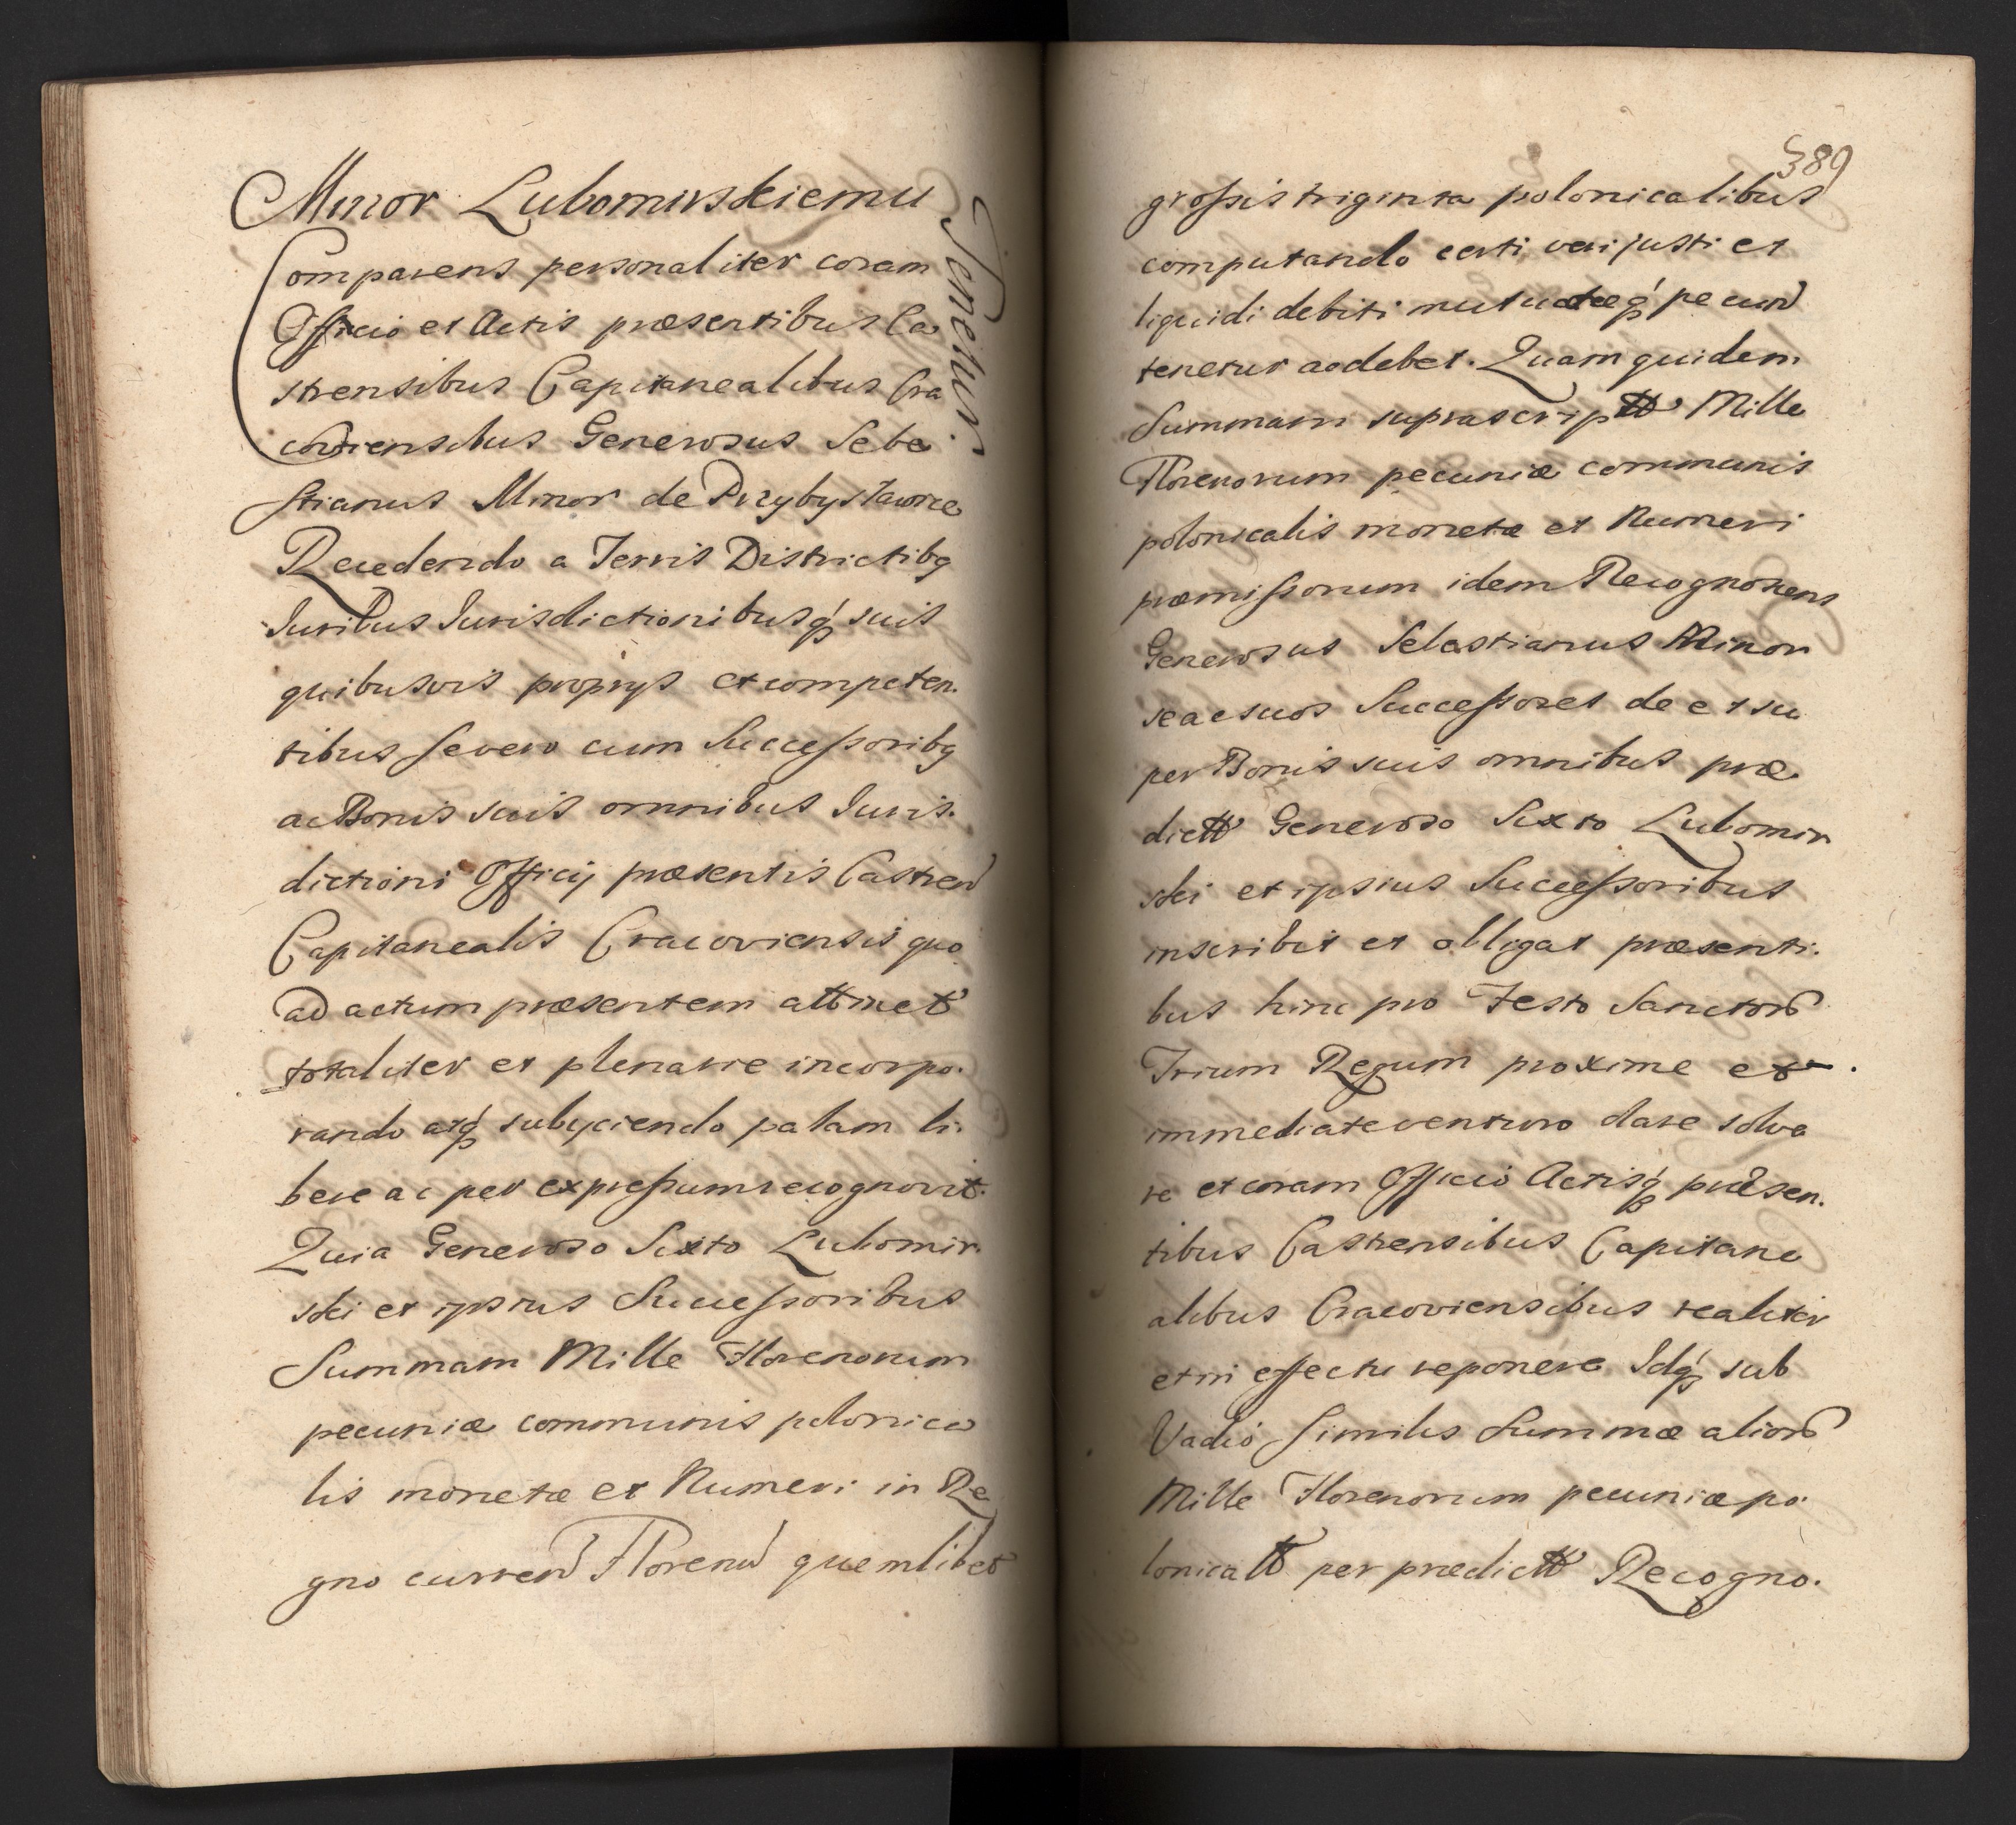 Minor Lubomirskiemu
Tenetur
Comparens personaliter coram
Officio et Actis præsentibus Ca
strensibus Capitanealibus Cra
coviensibus Generosus Seba
stianus Minor de Przybysławice
Recedendo a Terris Districtibq
Iuribus Iurisdictionibusq́ suis
quibusvis proprys et competen.
tibus se vero cum Successoribq
ac Bonis suis omnibus Iuris.
dictioni Officij præsentis Castren
Capitanealis Cracoviensis quo
ad actum præsentem attinet
totaliter et plenarie incorpo.
rando atq́ subyciendo palam li.
bere ac per expressum recognovit.
Quia Generoso Sixto Lubomir
ski et ipsius Successoribus
Summam Mille Florenorum
pecuniæ communis polonica
lis monetæ et Numeri in Re
gno curren Florenu quemlibet
389
grossis triginta polonicalibus
computando certi veri justi et
liquidi debiti mutuatæq́ pecun
tenetur ac debet. Quam quidem
Summam suprascriptt Mille
Florenorum pecuniæ communis
polonicalis monetæ et Numeri
præmissorum idem Recognoscens
Generosus Sebastianus Minor
se ac suos Successores de et su
per Bonis suis omnibus præ
dictt Generoso Sixto Lubomir
ski et ipsius Successoribus
inscribit et obligat præsenti.
bus hinc pro Festo Sanctor
Trium Regum proxime et
immediate venturo dare solve
re et coram Officio Actisq́ præsen.
tibus Castrensibus Capitane
alibus Cracoviensibus realiter
et in effectu reponere Idq́ sub
Vadio similis Summæ alior
Mille Florenorum pecuniæ po
lonicatt per prædictt Recogno.